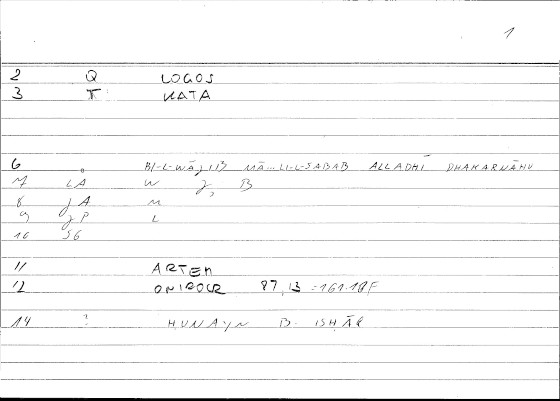 1
2 Q LOGOS
3 K KATA
6 BI-L-WĀJIB MĀ...LI-L-SABAB ALLADHĪ DHAKARNĀHU
7 LA W J B
8 JA M
9 JP L
10 SG
11 ARTEM
12 ONIROCR 87,13 =161.18F
14 ? HUNAYN B. ISHĀQ